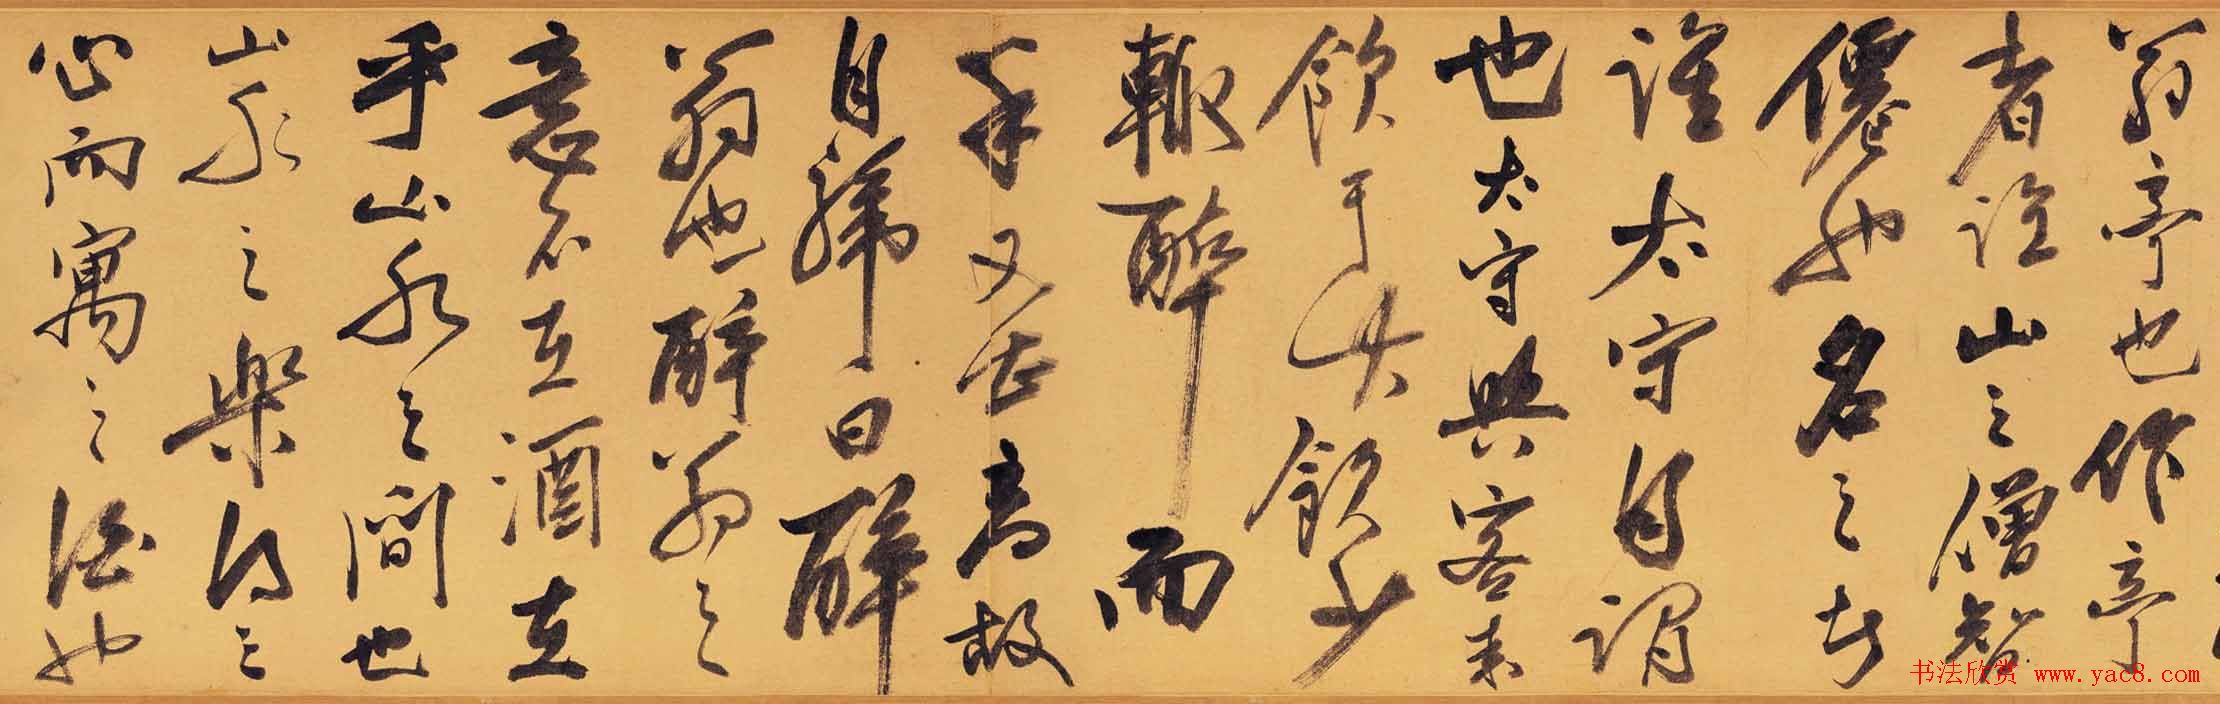 翁亭也作亭
者誰山之僧智
僊也名之者
誰太守自謂
也太守與客来
飲于此飲少
輙醉而
年又最高故
自號曰醉
翁也醉翁之
意不在酒在
乎山水之間也
山水之樂得之
心而寓之酒也
书法欣赏 www.yac8.com